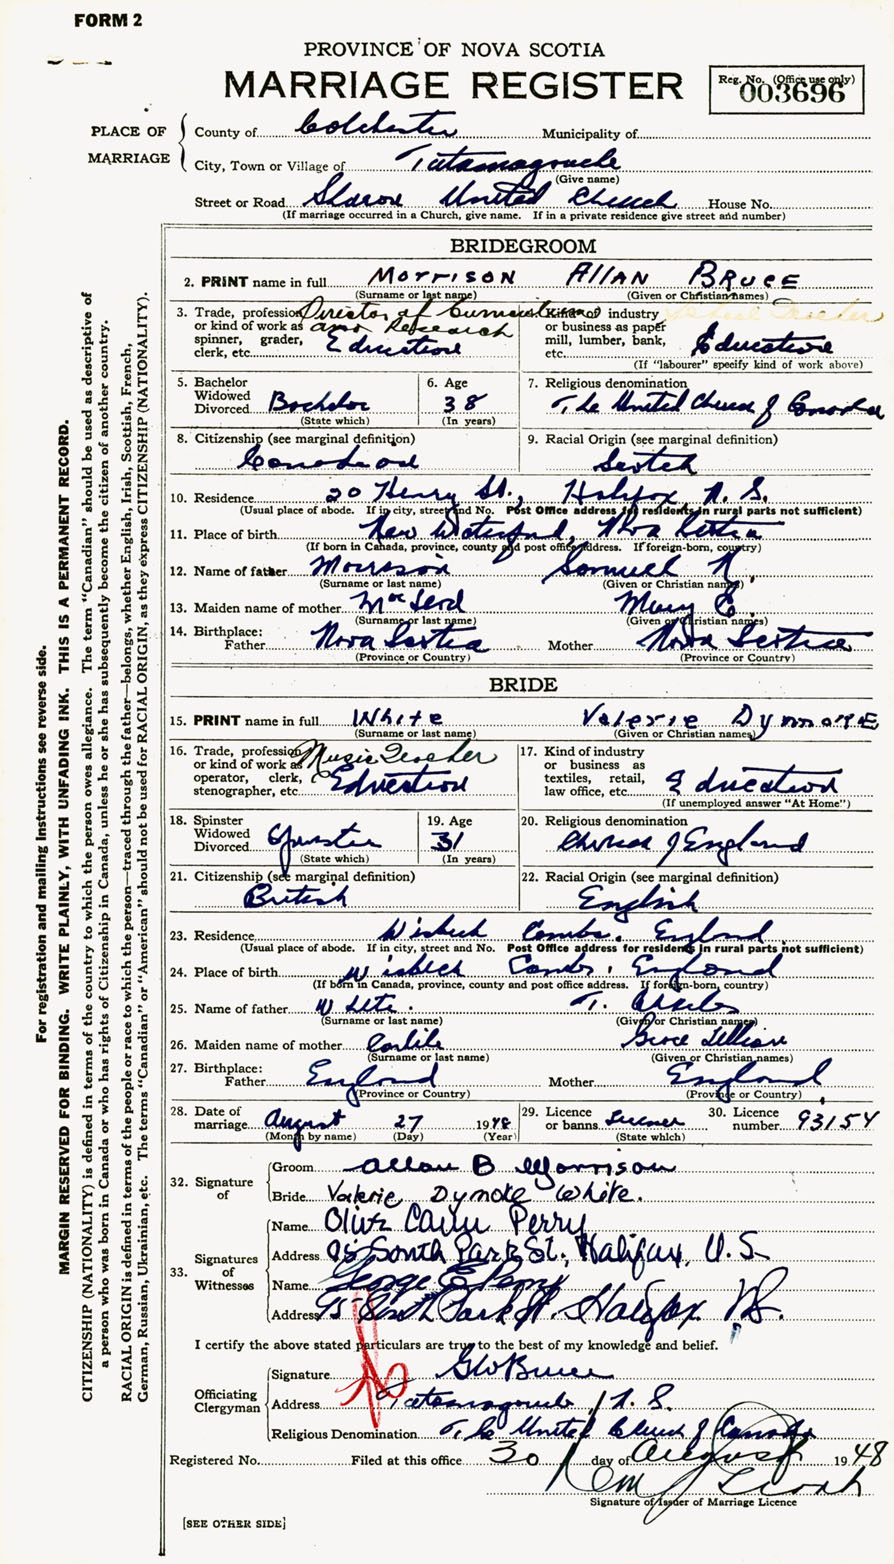 FORM 2
PROVINCE OF NOVA SCOTIA
MARRIAGE REGISTER
Reg. No. (Office use only)
003696
PLACE OF MARRIAGE
County of Colchester Municipality of
City, Town or Village of Tatamagouche
(Give name)
Street or Road Sharon United Church House No.
(If marriage occurred in a Church, give name. If in a private residence give street and number)
BRIDEGROOM
2. PRINT name in full Morrison Allan Bruce
(Surname or last name) (Given or Christian names)
3. Trade, profession or kind of work as spinner, grader, clerk, etc. Director of and Research Education
Kind of industry or business as paper mill, lumber, bank, etc. Education
(If "labourer" specify kind of work above)
5. Bachelor Widowed Divorced Bachelor (State which)
6. Age 38 (In years)
7. Religious denomination The United Church of Canada
8. Citizenship (see marginal definition) Canadian
9. Racial Origin (see marginal definition) Scotch
10. Residence 20 Henry St., Halifax N.S.
(Usual place of abode. If in city, street and No. Post Office address for residents in rural parts not sufficient)
11. Place of birth New Waterford, Nova Scotia
(If born in Canada, province, county and post office address. If foreign-born, country)
12. Name of father Morrison Samuel N.
(Surname or last name) (Given or Christian names)
13. Maiden name of mother McLeod Mary E.
(Surname or last name) (Given or Christian names)
14. Birthplace: Father Nova Scotia Mother Nova Scotia
(Province or Country) (Province or Country)
BRIDE
15. PRINT name in full White Valerie Dymoke
(Surname or last name) (Given or Christian names)
16. Trade, profession or kind of work as operator, clerk, stenographer, etc. Music Teacher Education
17. Kind of industry or business as textiles, retail, law office, etc. Education
(If unemployed answer "At Home")
18. Spinster Widowed Divorced Spinster (State which)
19. Age 31 (In years)
20. Religious denomination Church of England
21. Citizenship (see marginal definition) British
22. Racial Origin (see marginal definition) English
23. Residence Wisbech Cambs. England
(Usual place of abode. If in city, street and No. Post Office address for residents in rural parts not sufficient)
24. Place of birth Wisbech Cambs. England
(If born in Canada, province, county and post office address. If foreign-born, country)
25. Name of father White T.
(Surname or last name) (Given or Christian names)
26. Maiden name of mother Carlile Grace Lillian
(Surname or last name) (Given or Christian names)
27. Birthplace: Father England Mother England
(Province or Country) (Province or Country)
28. Date of marriage August 27 1948
(Month by name) (Day) (Year)
29. Licence or banns License (State which)
30. Licence number 93154
32. Signature of
Groom Allan B Morrison
Bride Valerie Dymoke White.
33. Signatures of Witnesses
Name Olive Perry
Address 95 South Park St., Halifax, N.S.
Name George E Perry
Address 95 South Park St. Halifax N.S.
I certify the above stated particulars are true to the best of my knowledge and belief.
Officiating Clergyman
Signature G W Bruce
Address Tatamagouche, N.S.
Religious Denomination The United Church of Canada
Registered No. Filed at this office 30 day of August 1948
Signature of Issuer of Marriage Licence
[SEE OTHER SIDE]
For registration and mailing instructions see reverse side.
MARGIN RESERVED FOR BINDING. WRITE PLAINLY, WITH UNFADING INK. THIS IS A PERMANENT RECORD.
CITIZENSHIP (NATIONALITY) is defined in terms of the country to which the person owes allegiance. The term "Canadian" should be used as descriptive of
a person who was born in Canada or who has rights of Citizenship in Canada, unless he or she has subsequently become the citizen of another country.
RACIAL ORIGIN is defined in terms of the people or race to which the person—traced through the father—belongs, whether English, Irish, Scottish, French,
German, Russian, Ukrainian, etc. The terms "Canadian" or "American" should not be used for RACIAL ORIGIN, as they express CITIZENSHIP (NATIONALITY).